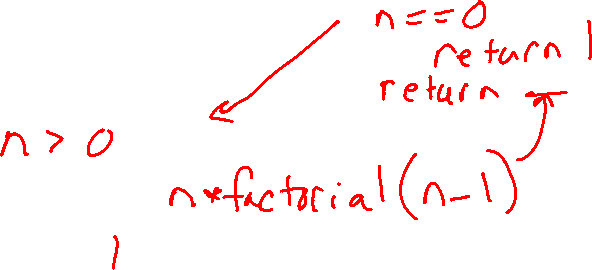 n==0
return 1
return
n>0
n*factorial(n-1)
1